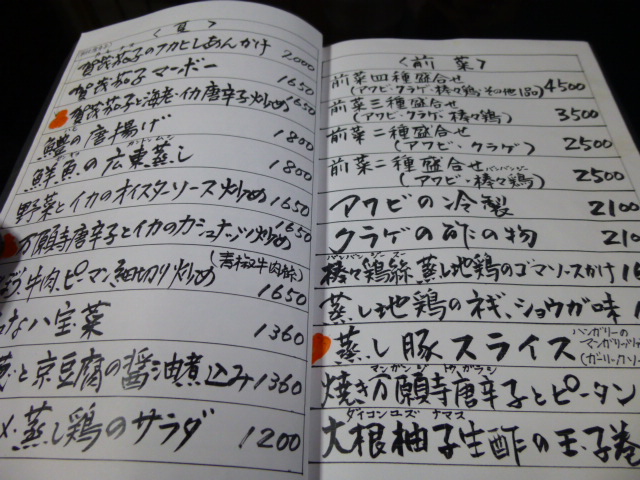 〈夏〉
賀茂茄子のフカヒレあんかけ 2000
賀茂茄子マーボー 1650
賀茂茄子と海老・イカ唐辛子炒め 1650
鱧の唐揚げ 1800
鮮魚の広東蒸し 1800
野菜とイカのオイスターソース炒め 1650
万願寺唐辛子とイカのカシュナッツ炒め 1650
牛肉、ピーマン細切り炒め (青椒牛肉絲) 1650
八宝菜 1360
と京豆腐の醤油煮込み 1360
蒸し鶏のサラダ 1200
〈前菜〉
前菜四種盛合せ
(アワビ・クラゲ・棒々鶏、その他1品) 4500
前菜三種盛合せ
(アワビ・クラゲ・棒々鶏) 3500
前菜二種盛合せ
(アワビ・クラゲ) 2500
前菜二種盛合せ
バンバンジー
(アワビ・棒々鶏) 2500
アワビの冷製 2100
クラゲの酢の物 210
棒々鶏絲 蒸し地鶏のゴマソースかけ
蒸し地鶏のネギ、ショウガ味
蒸し豚スライス
ハンガリーの
マンガリッツァ
(ガーリックソー
マンガンジ トウガラシ
焼き万願寺唐辛子とピータン
ダイコンユズ ナマス
大根柚子生酢の玉子巻